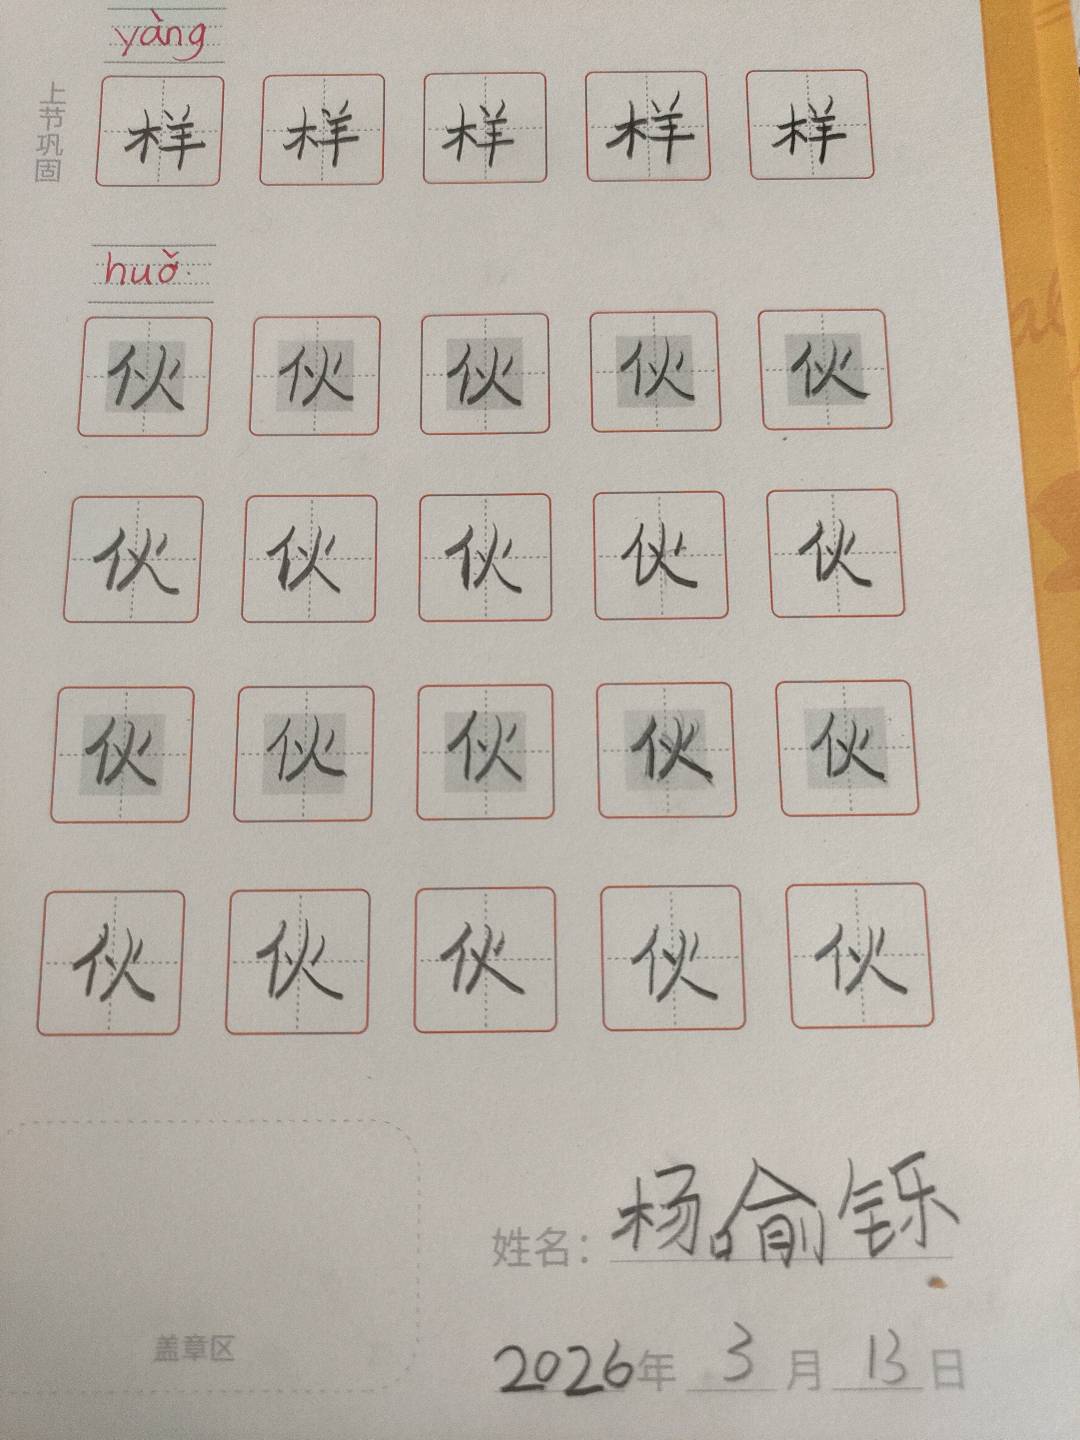 yàng
上节巩固
样 样 样 样 样
huǒ
伙 伙 伙 伙 伙
伙 伙 伙 伙 伙
伙 伙 伙 伙 伙
伙 伙 伙 伙 伙
姓名：杨喻铄
盖章区
2026年 3 月 13 日